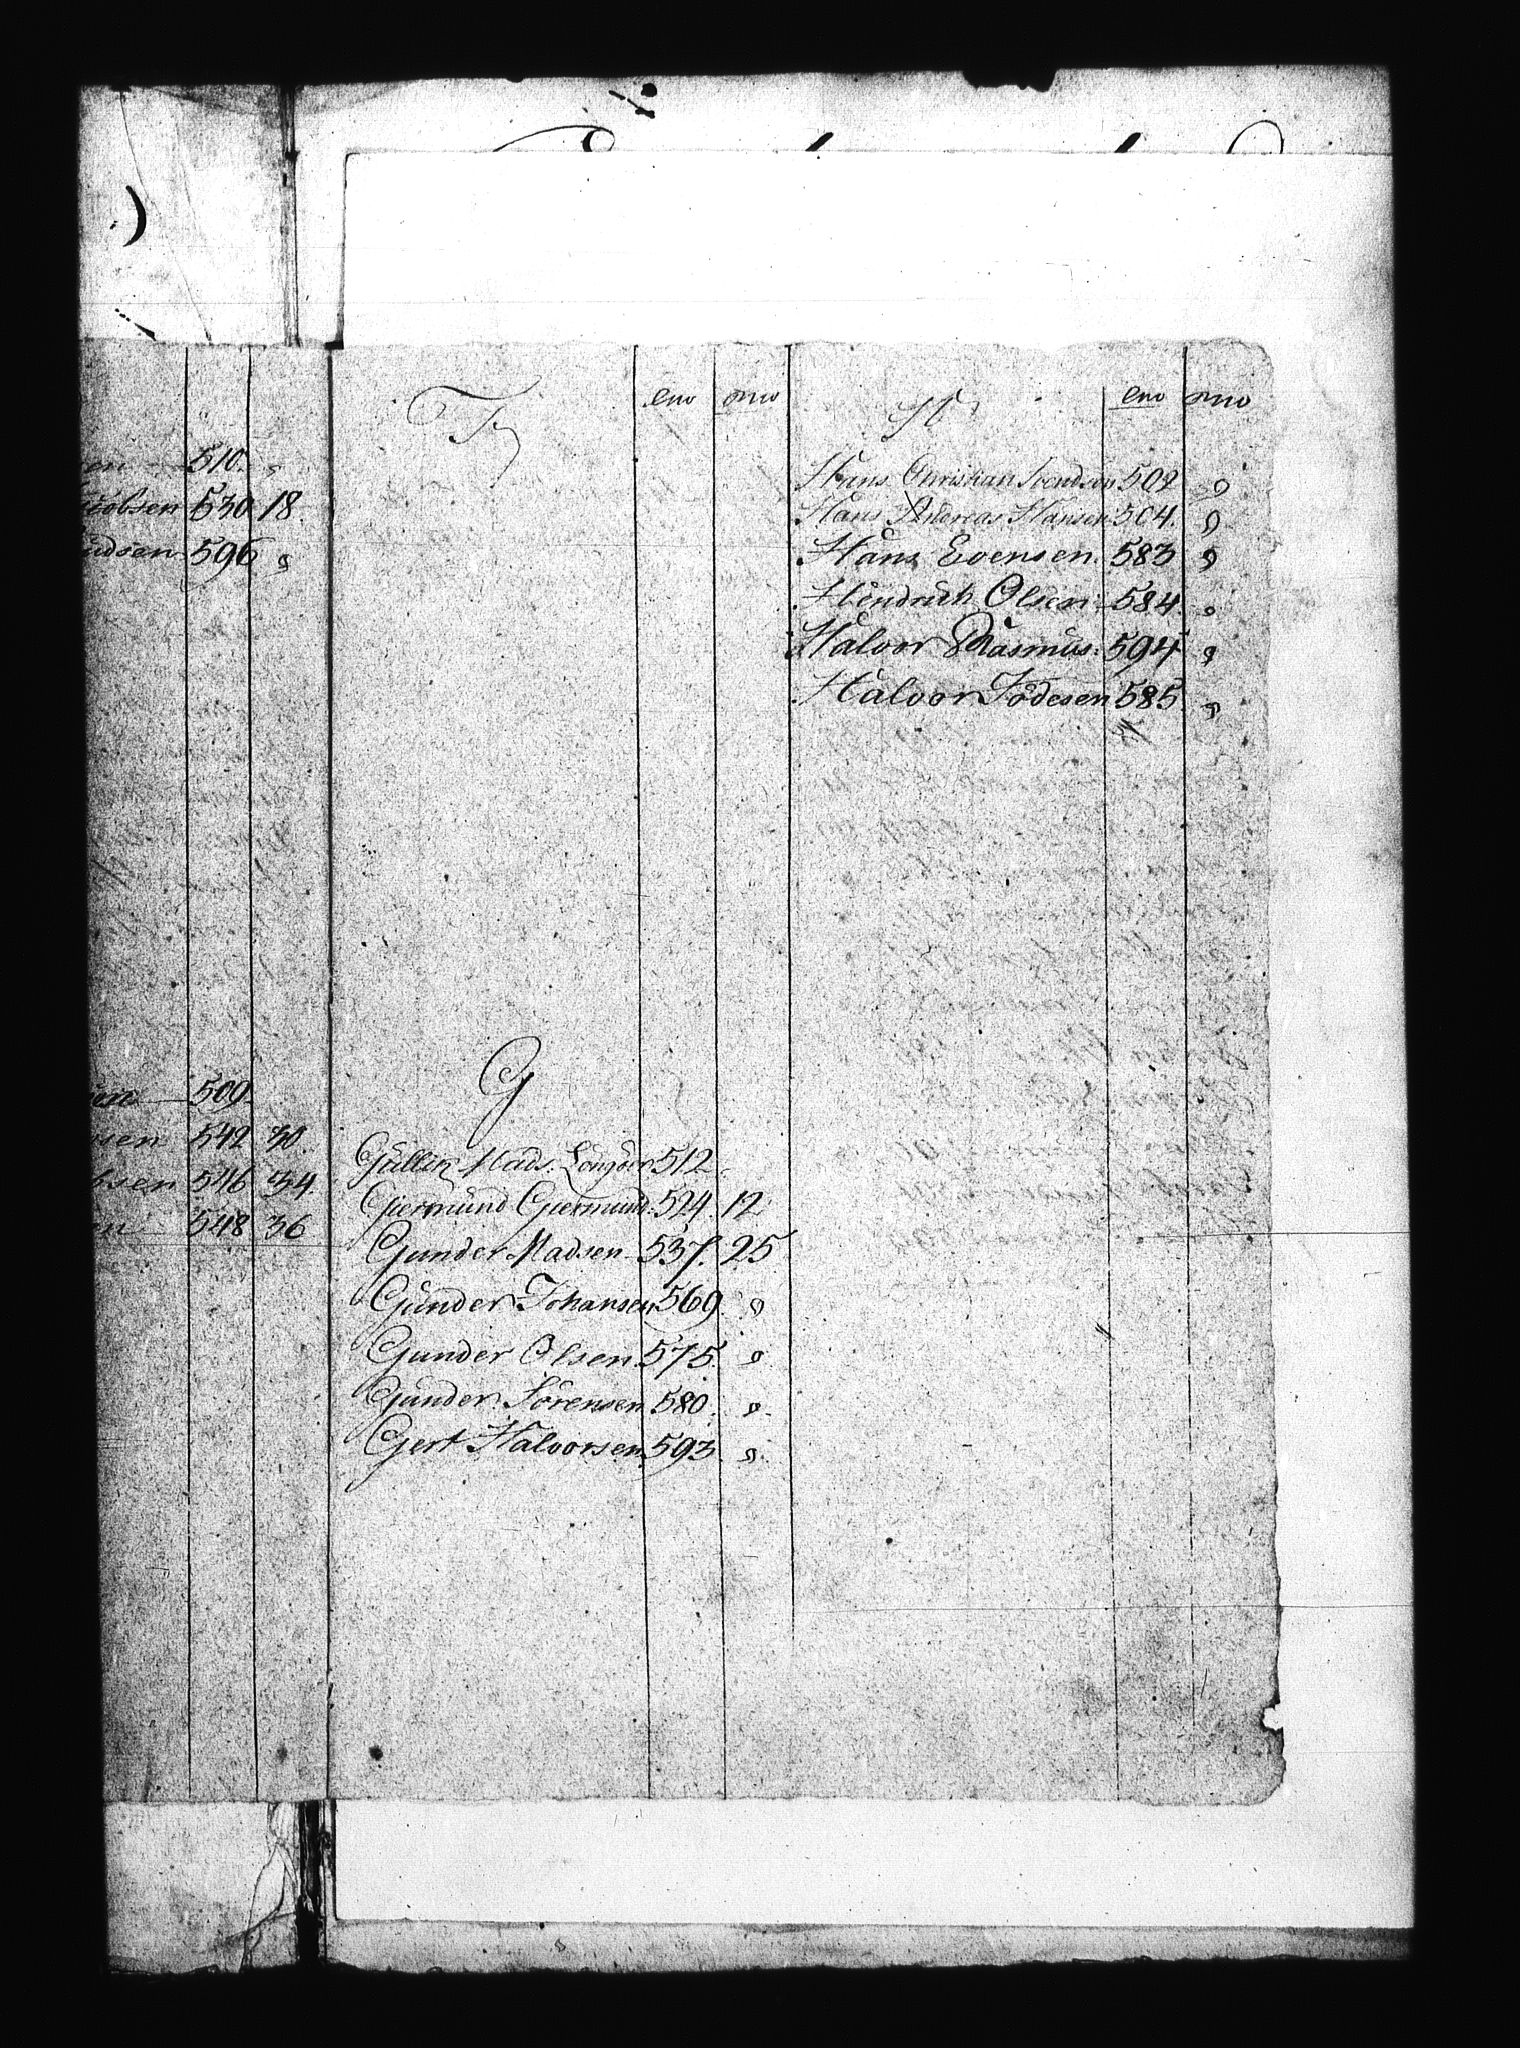 sen 510. "
acobsen 530 18.
udsen 596 "
sen 509
bsen 542 30.
bsen 546 34.
en 548 36
F
G
Gullik Mads: 512
Giermund Giermund: 524. 12
Gunder Madsen 537. 25
Gunder Johansen 569. "
Gunder Olsen 575. "
Gunder Sörensen 580. "
Gert Halvorsen 593. "
H
Hans Christian Svendsen 502 "
Hans Andreas Hansen 504. "
Hans Evensen. 583 "
Hendrich Olsen 584. "
Halvor Rasmus: 594 "
Halvor Jodesen 585 "